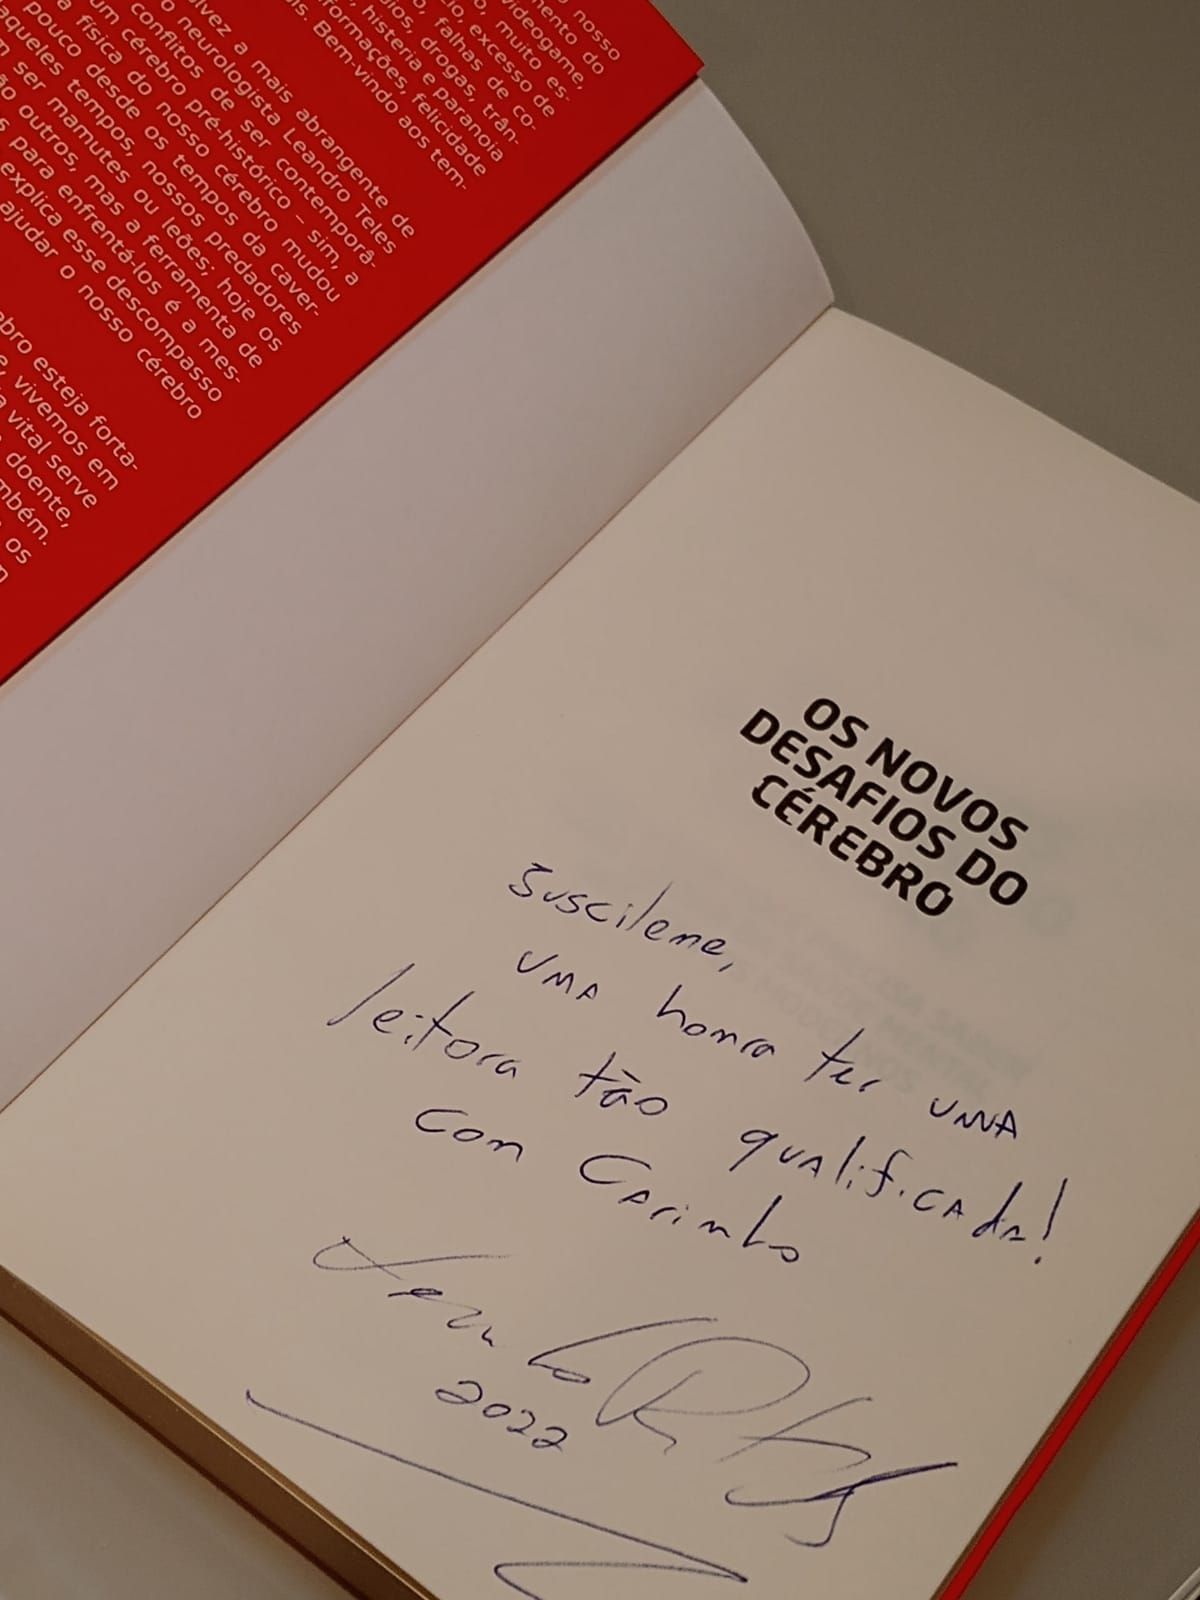 nosso
mento do
videogame,
, muito es-
o, excesso de
, falhas de co-
ios, drogas, trân-
, histeria e paranoia
formações, felicidade
is. Bem-vindo aos tem-
lvez a mais abrangente de
o neurologista Leandro Teles
conflitos de ser contemporâ-
um cérebro pré-histórico – sim, a
a física do nosso cérebro mudou
pouco desde os tempos da caver-
aqueles tempos, nossos predadores
m ser mamutes ou leões; hoje os
ão outros, mas a ferramenta de
s para enfrentá-los é a mes-
explica esse descompasso
ajudar o nosso cérebro
bro esteja forta-
e, vivemos em
a vital serve
doente,
mbém.
os
OS NOVOS
DESAFIOS DO
CÉREBRO
Suscilene,
UMA honra ter UMA
leitora tão qualificada!
Com Carinho
2022